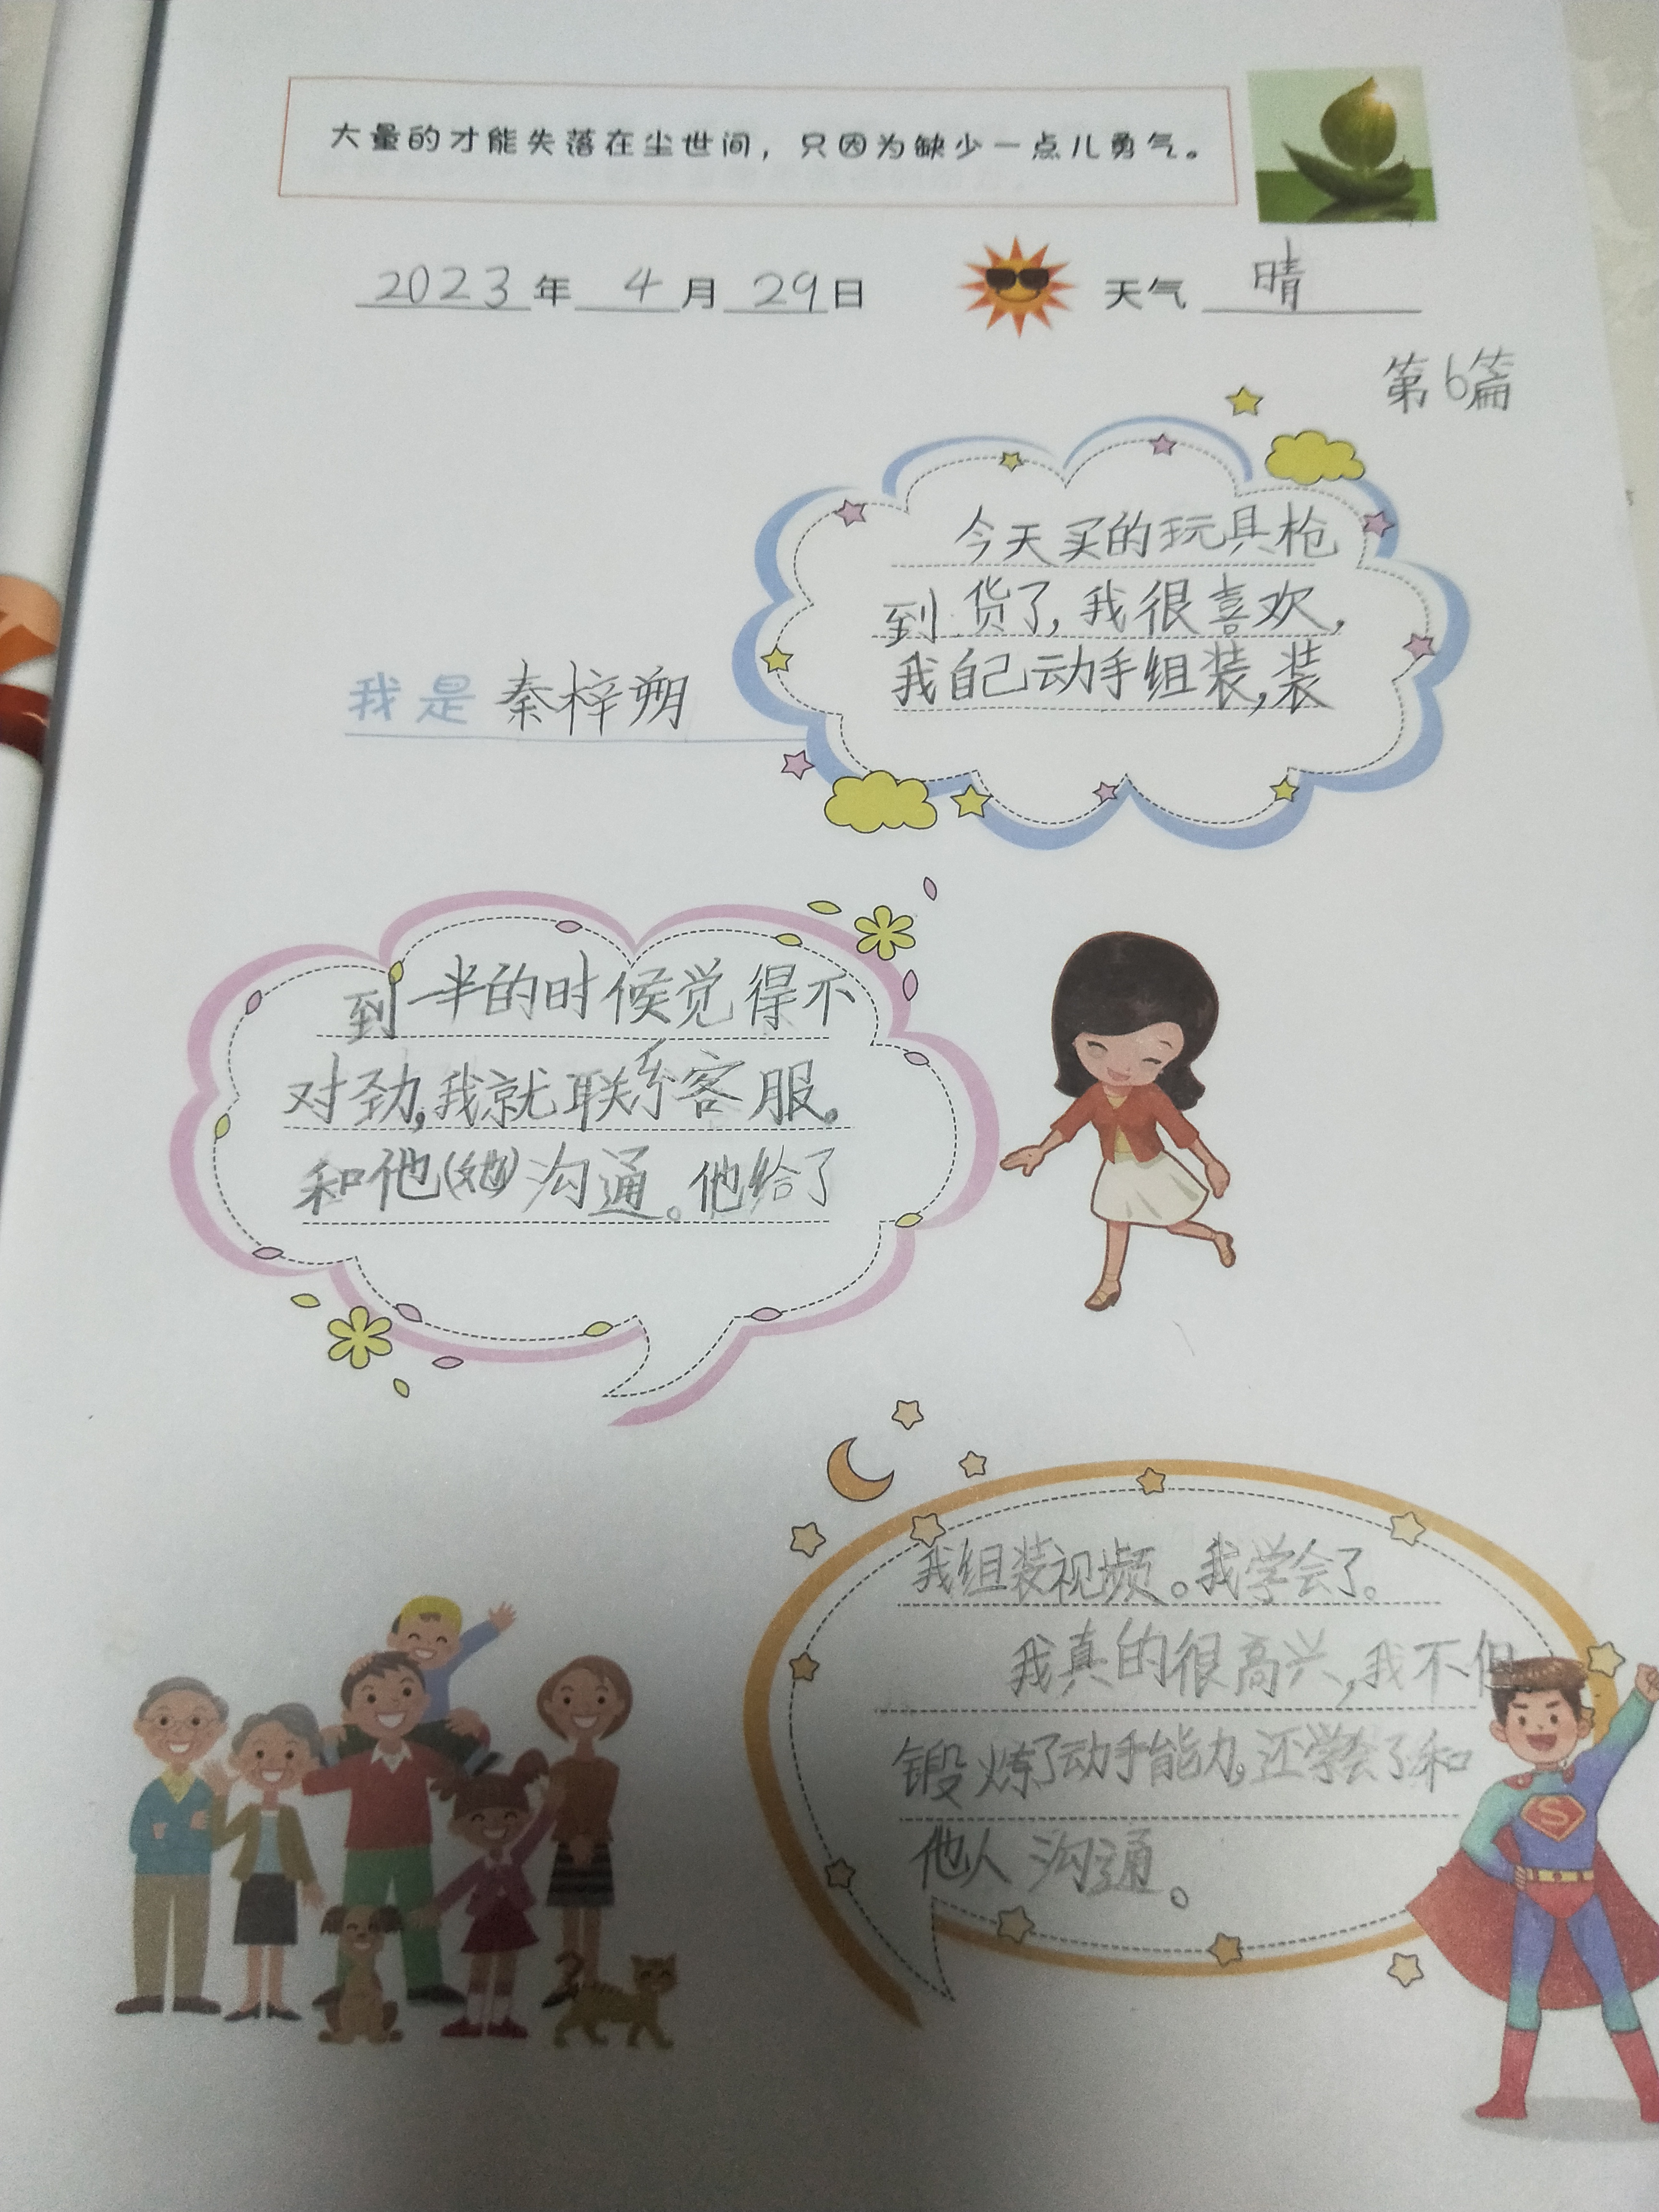 大量的才能失落在尘世间，只因为缺少一点儿勇气。
2023年 4月29日 天气 晴
第6篇
今天买的玩具枪
到货了，我很喜欢，
我自己动手组装，装
我是 秦梓朔
到一半的时候觉得不
对劲，我就联系客服。
和他(她)沟通。他给了
我组装视频。我学会了。
我真的很高兴，我不但
锻炼了动手能力，还学会了和
他人沟通。
S